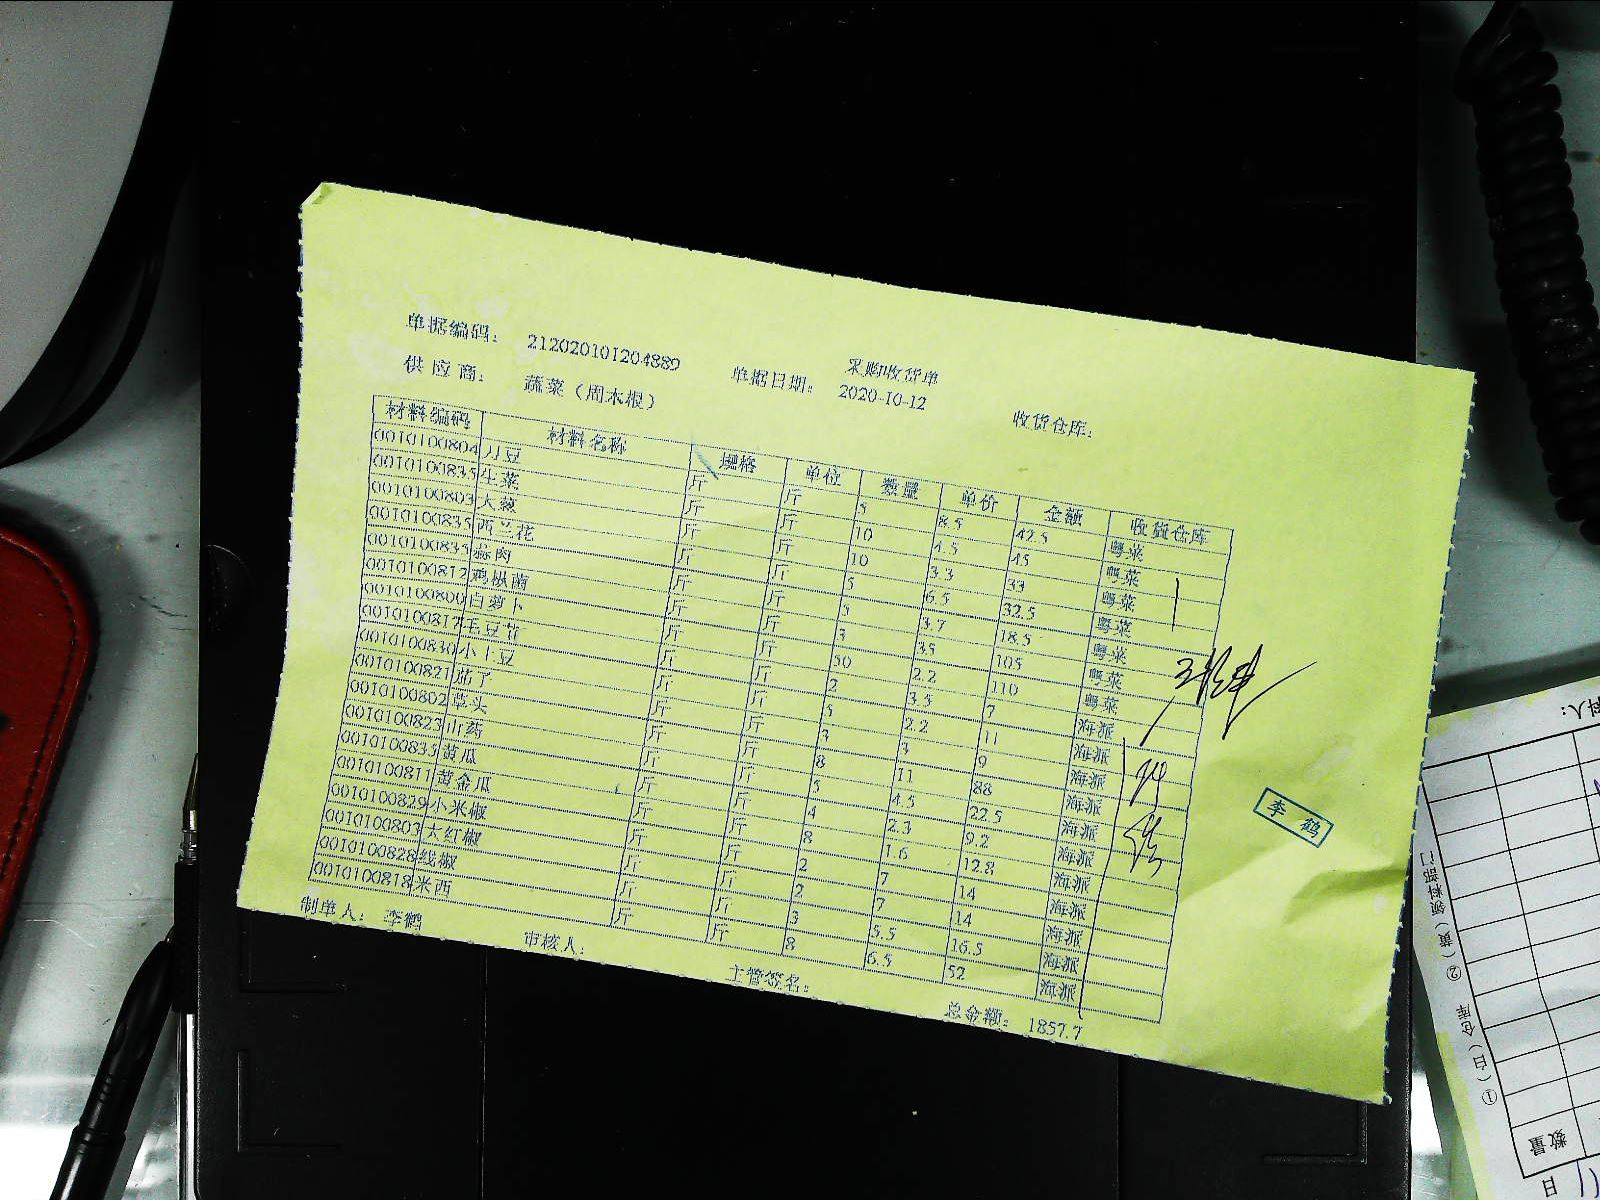 采购收货单
单据编码： 212020101204889 单据日期： 2020-10-12 收货仓库：
供 应 商： 蔬菜（周本根）
材料编码 材料名称 规格 单位 数量 单价 金额 收货仓库
0010100804 刀豆 斤 斤 5 8.5 42.5 粤菜
0010100835 生菜 斤 斤 10 4.5 45 粤菜
0010100803 大葱 斤 斤 10 3.3 33 粤菜
0010100835 西兰花 斤 斤 5 6.5 32.5 粤菜
0010100835 蒜肉 斤 斤 5 3.7 18.5 粤菜
0010100812 鸡枞菌 斤 斤 3 35 105 粤菜
0010100800 白萝卜 斤 斤 50 2.2 110 粤菜
0010100817 毛豆节 斤 斤 2 3.5 7 海派
0010100830 小土豆 斤 斤 5 2.2 11 海派
0010100821 茄子 斤 斤 3 3 9 海派
0010100802 草头 斤 斤 8 11 88 海派
0010100823 山药 斤 斤 5 4.5 22.5 海派
0010100835 黄瓜 斤 斤 4 2.3 9.2 海派
0010100811 黄金瓜 斤 斤 8 1.6 12.8 海派
0010100829 小米椒 斤 斤 2 7 14 海派
0010100803 大红椒 斤 斤 2 7 14 海派
0010100828 线椒 斤 斤 3 5.5 16.5 海派
0010100818 米西 斤 斤 8 6.5 52 海派
制单人： 李鹤 审核人： 主管签名： 总金额： 1857.7
李 鹤
料人：
①（白）仓库 ②（黄）领料部门
数量
日